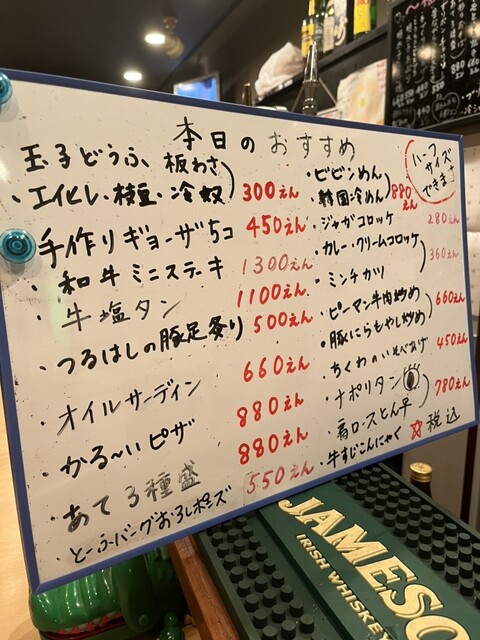 本日のおすすめ
玉子どうふ、板わさ
・エイヒレ・枝豆・冷奴 300えん
・手作りギョーザ5コ 450えん
・和牛ミニステーキ 1300えん
・牛塩タン 1100えん
・つるはしの豚足炙り 500えん
・オイルサーディン 660えん
・かる〜いピザ 880えん
・あて3種盛 880えん
・とーふバーグおろしポンズ 550えん
ハーフサイズできます
・ビビンめん
・韓国冷めん 880えん
・ジャガコロッケ 280えん
・カレー・クリームコロッケ
・ミンチカツ 360えん
・ピーマン牛肉炒め
・豚にらもやし炒め 660えん
・ちくわのいそべあげ 450えん
・ナポリタン
・肩ロースとん平 780えん
・牛すじこんにゃく
☆税込
JAMESO
IRISH WHISKEY